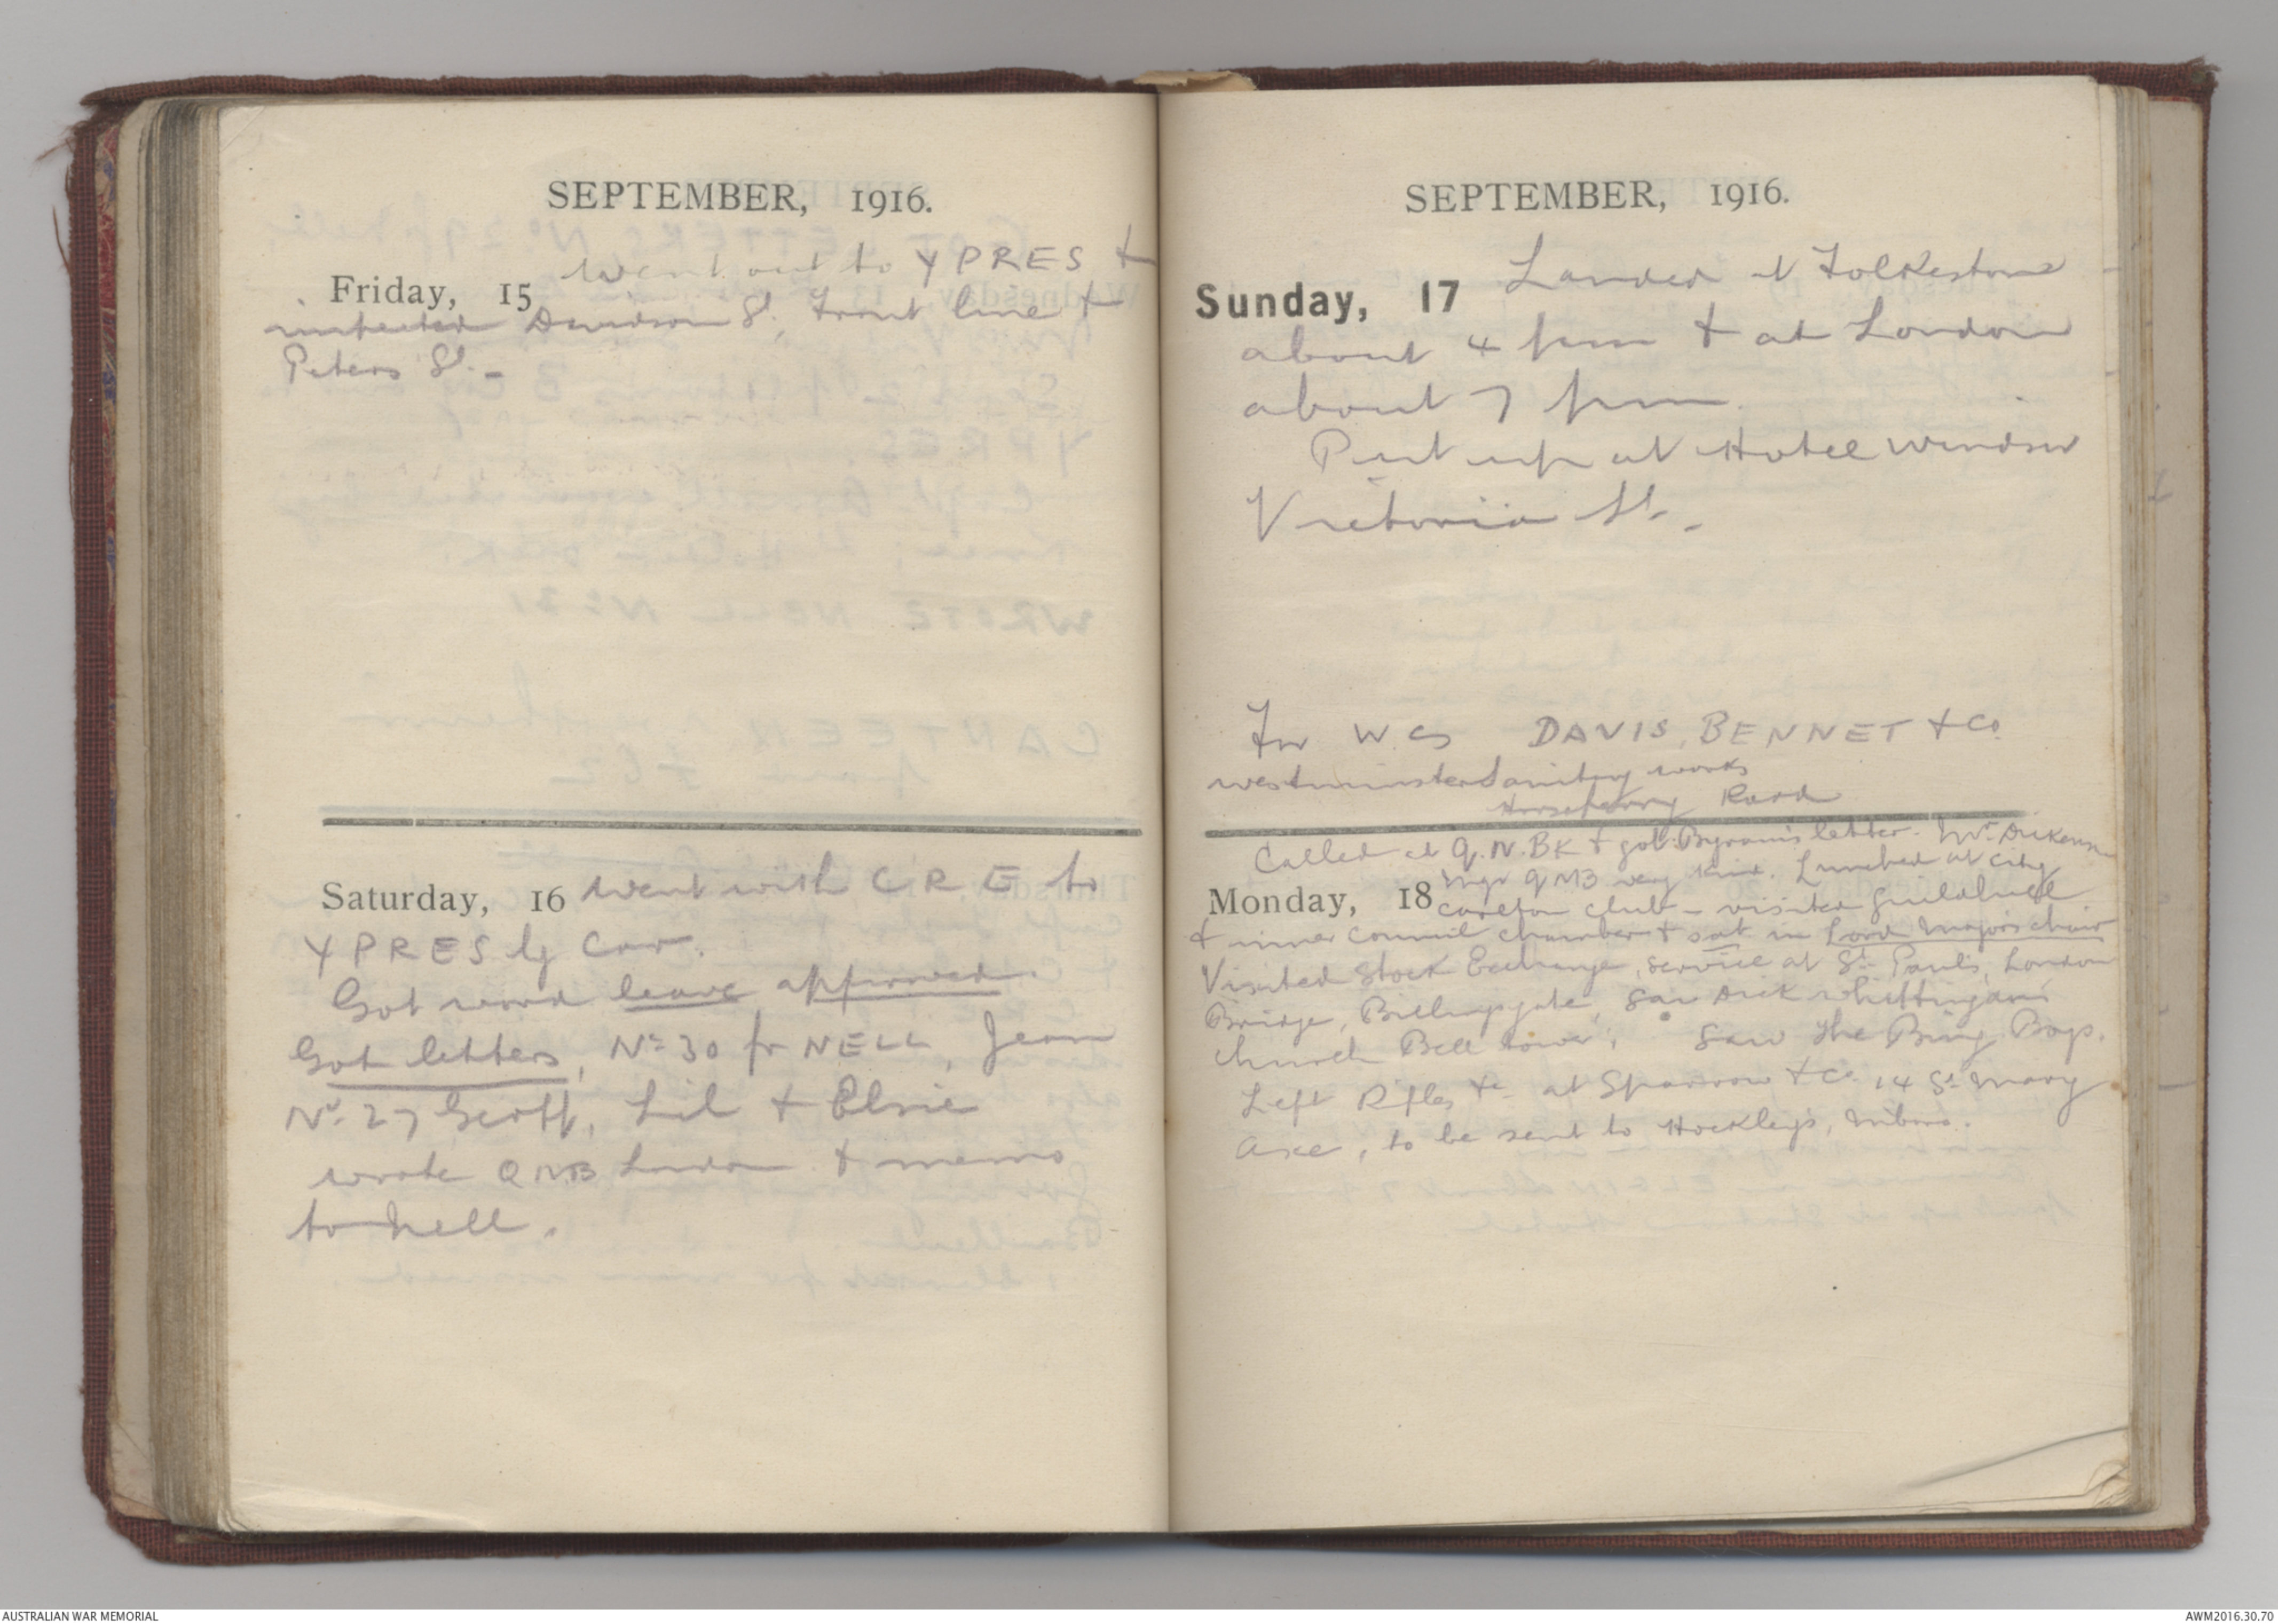 SEPTEMBER, 1916.
Friday, 15 Went out to YPRES &
inspected Davidson St, Front line &
Peters St. -
Saturday, 16 Went with C R E to
YPRES by Car.
Got word leave approved.
Got letters, No 30 fr NELL, Jean
No. 27 Geoff, Lil & Elsie
wrote QNB London & memo
to Nell.
SEPTEMBER, 1916.
Sunday, 17 Landed at Folkestone
about 4 pm & at London
about 7 pm.
Put up at Hotel Windsor
Victoria St. -
For W.Cs DAVIS, BENNET & Co.
Westminster Sanitary works
Horseferry Road
Called at Q.N.BK & got Byram's letter. Mr Dickenson
Mgr QNB very kind. Lunched at City
Monday, 18 Carlton Club - visited Guildhall
& inner Council chamber & sat in Lord Mayors chair
Visited Stock Exchange, service at St Pauls, London
Bridge, Billingsgate, Saw Dick Whittingtons
Church Bell tower. Saw The Bing Boys.
Left Rifles &c at Sparrow & Co. 14 St Mary
Axe, to be sent to Hockleys,
AUSTRALIAN WAR MEMORIAL
AWM2016.30.70